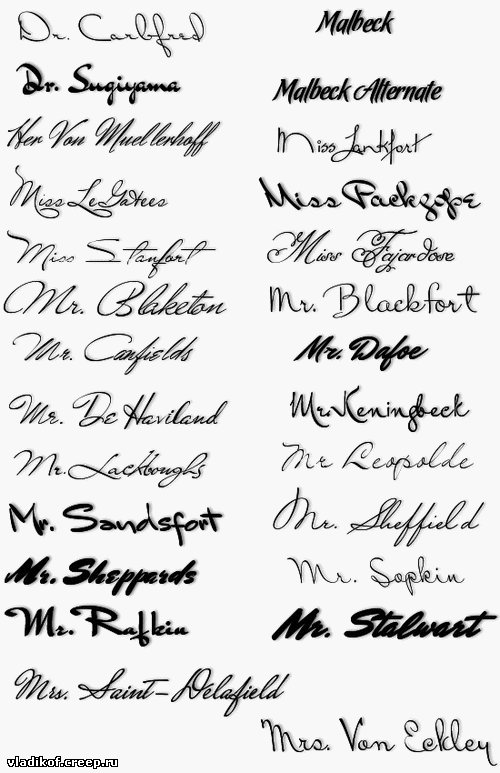 Dr. Carbfred
Malbeck
Dr. Sugiyama
Malbeck Alternate
Her Von Muellerhoff
Miss Lankfort
Miss LeGatees
Miss Packgope
Miss Stanfort
Miss Fajardose
Mr. Blaketon
Mr. Blackfort
Mr. Canfields
Mr. Dafoe
Mr. De Haviland
Mr. Keningbeck
Mr. Lackboughs
Mr Leopolde
Mr. Sandsfort
Mr. Sheffield
Mr. Sheppards
Mr. Sopkin
Mr. Rafkin
Mr. Stalwart
Mrs. Saint-Delafield
Mrs. Von Eckley
vladikof.creep.ru